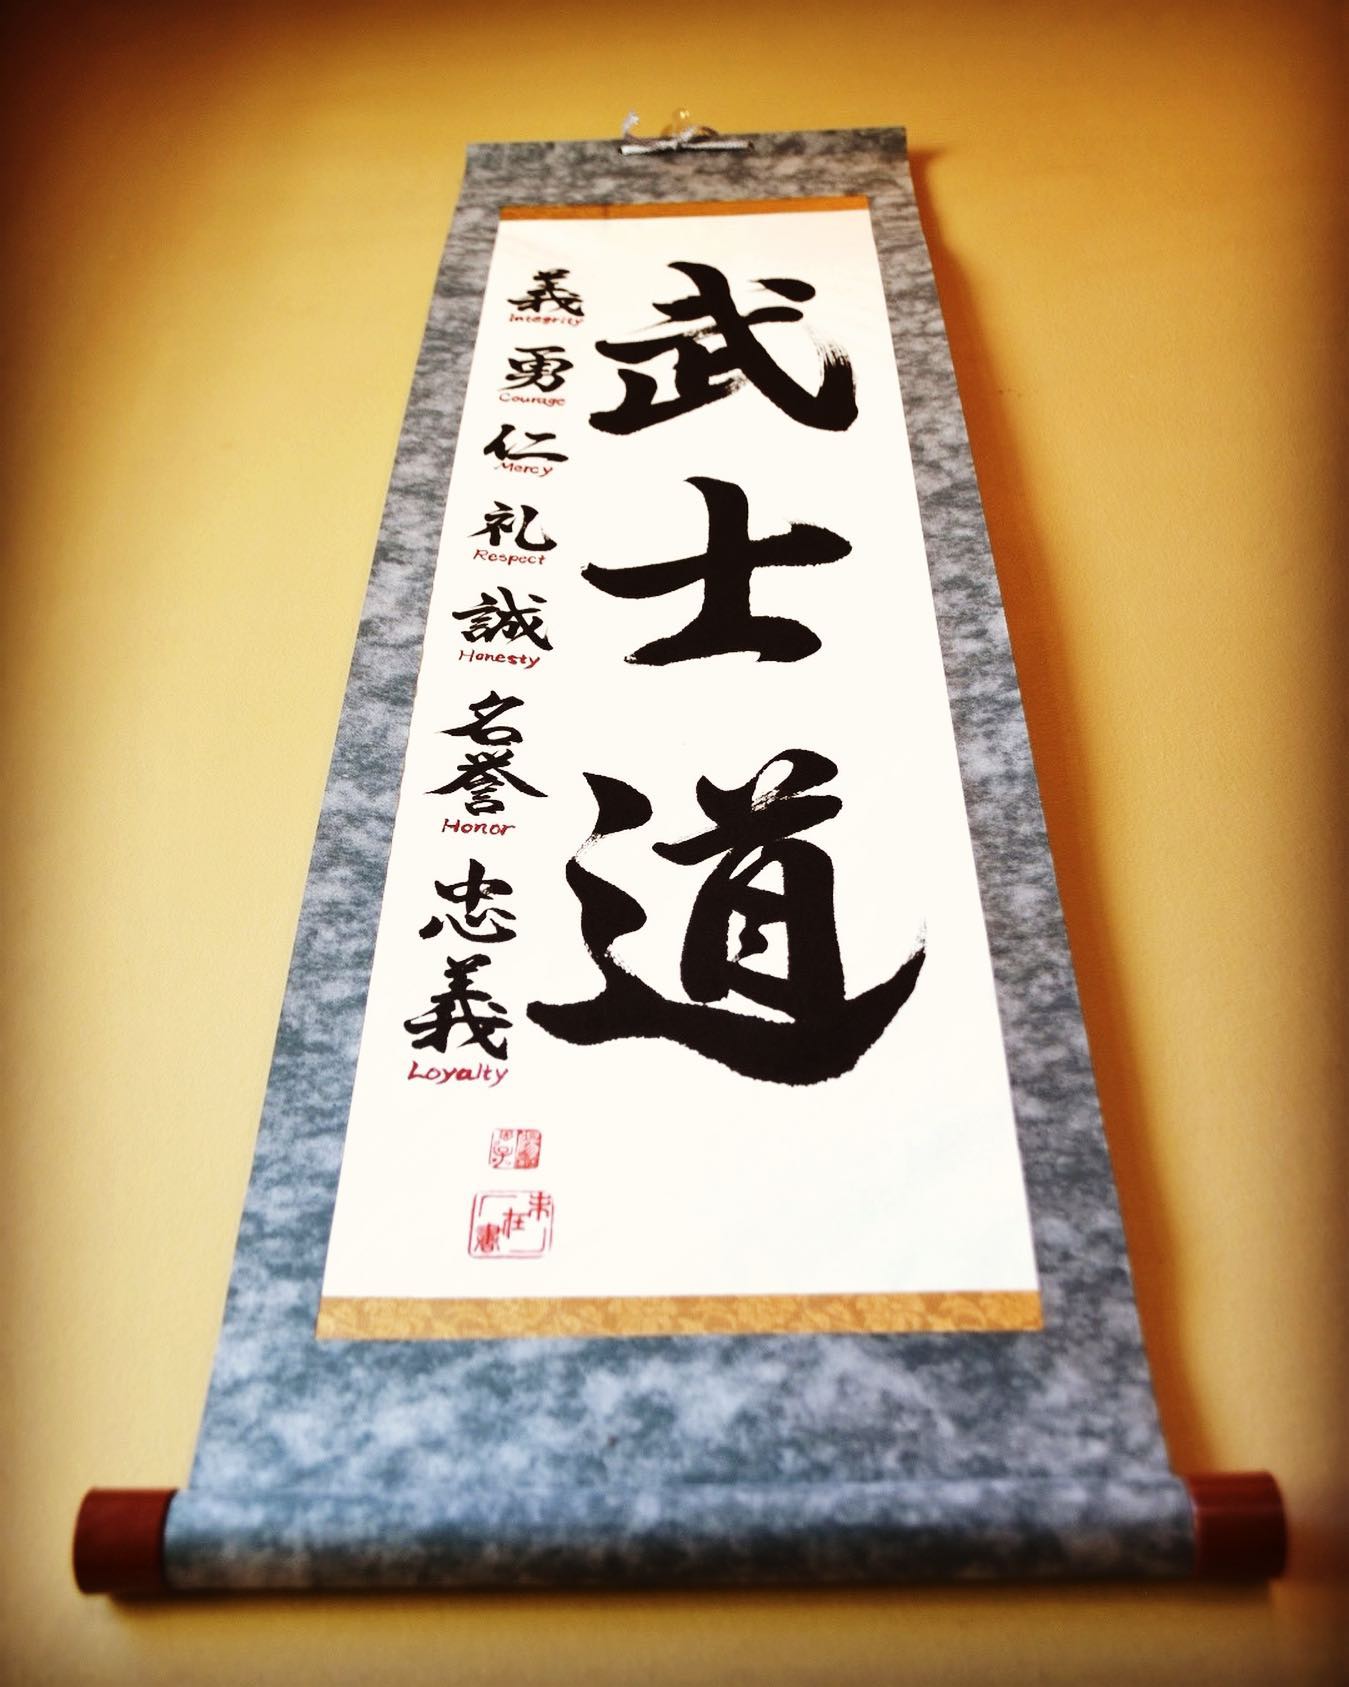 武士道
義
Integrity
勇
Courage
仁
Mercy
礼
Respect
誠
Honesty
名誉
Honor
忠義
Loyalty